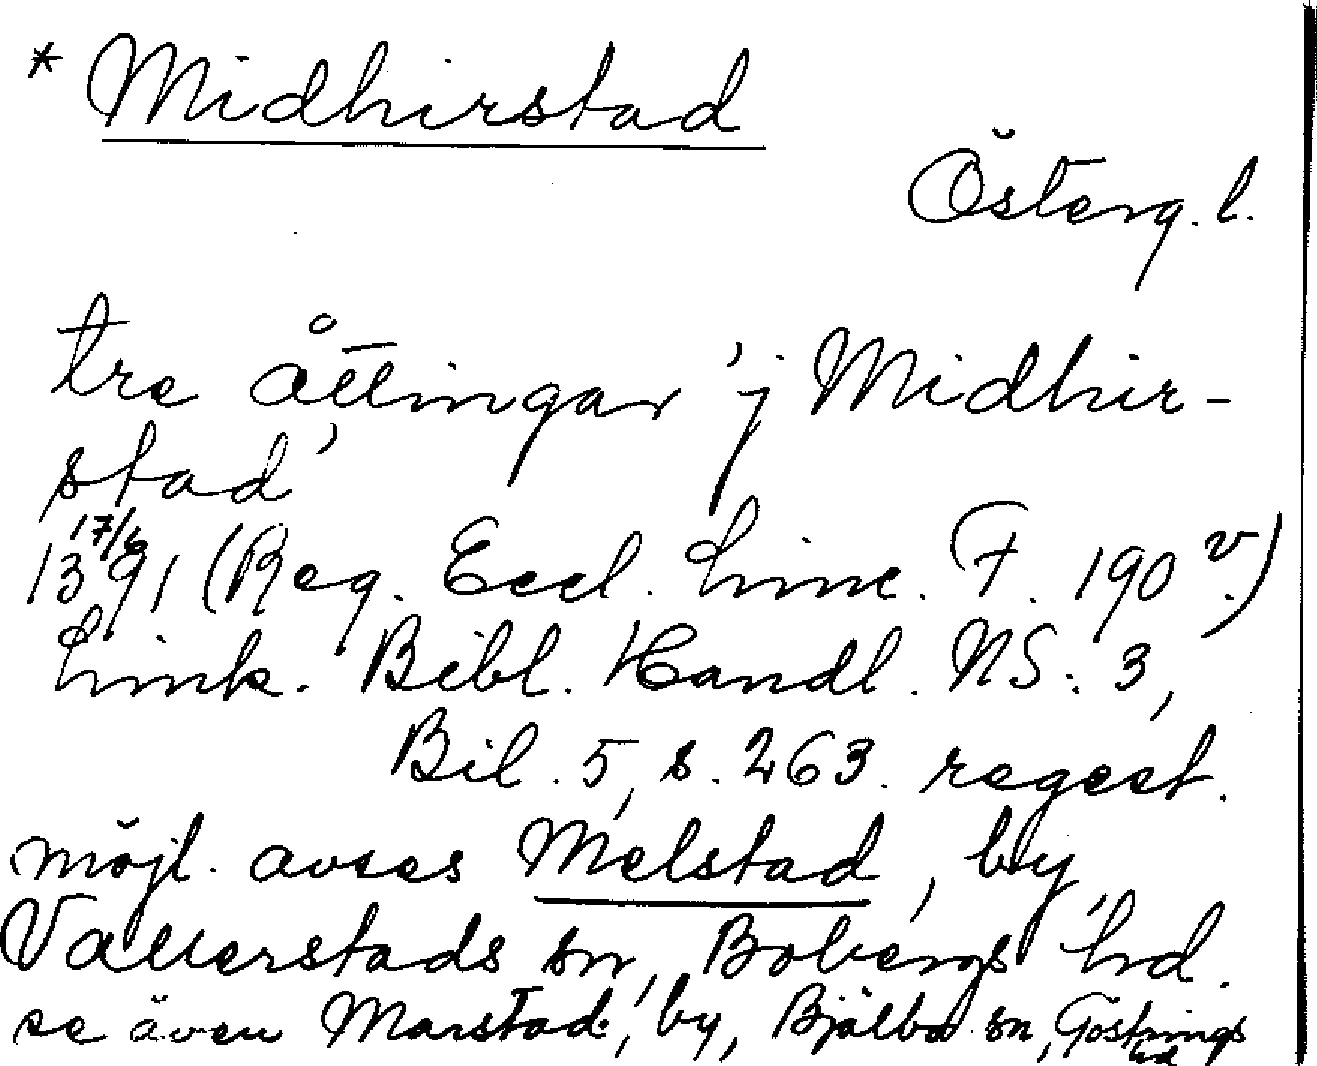 * Midhirstad
Österg. l.
tre åttingar 'j Midhir-
stad'
17/6
1391 (Reg. Eccl. Linc. F. 190 v.)
Link. Bibl. Handl. NS. 3,
Bil. 5, s. 263. regest.
möjl. avses Melstad, by,
Vallerstads sn, Bobergs hd.
se även Marstad, by, Bjälbo sn, Göstrings
hd